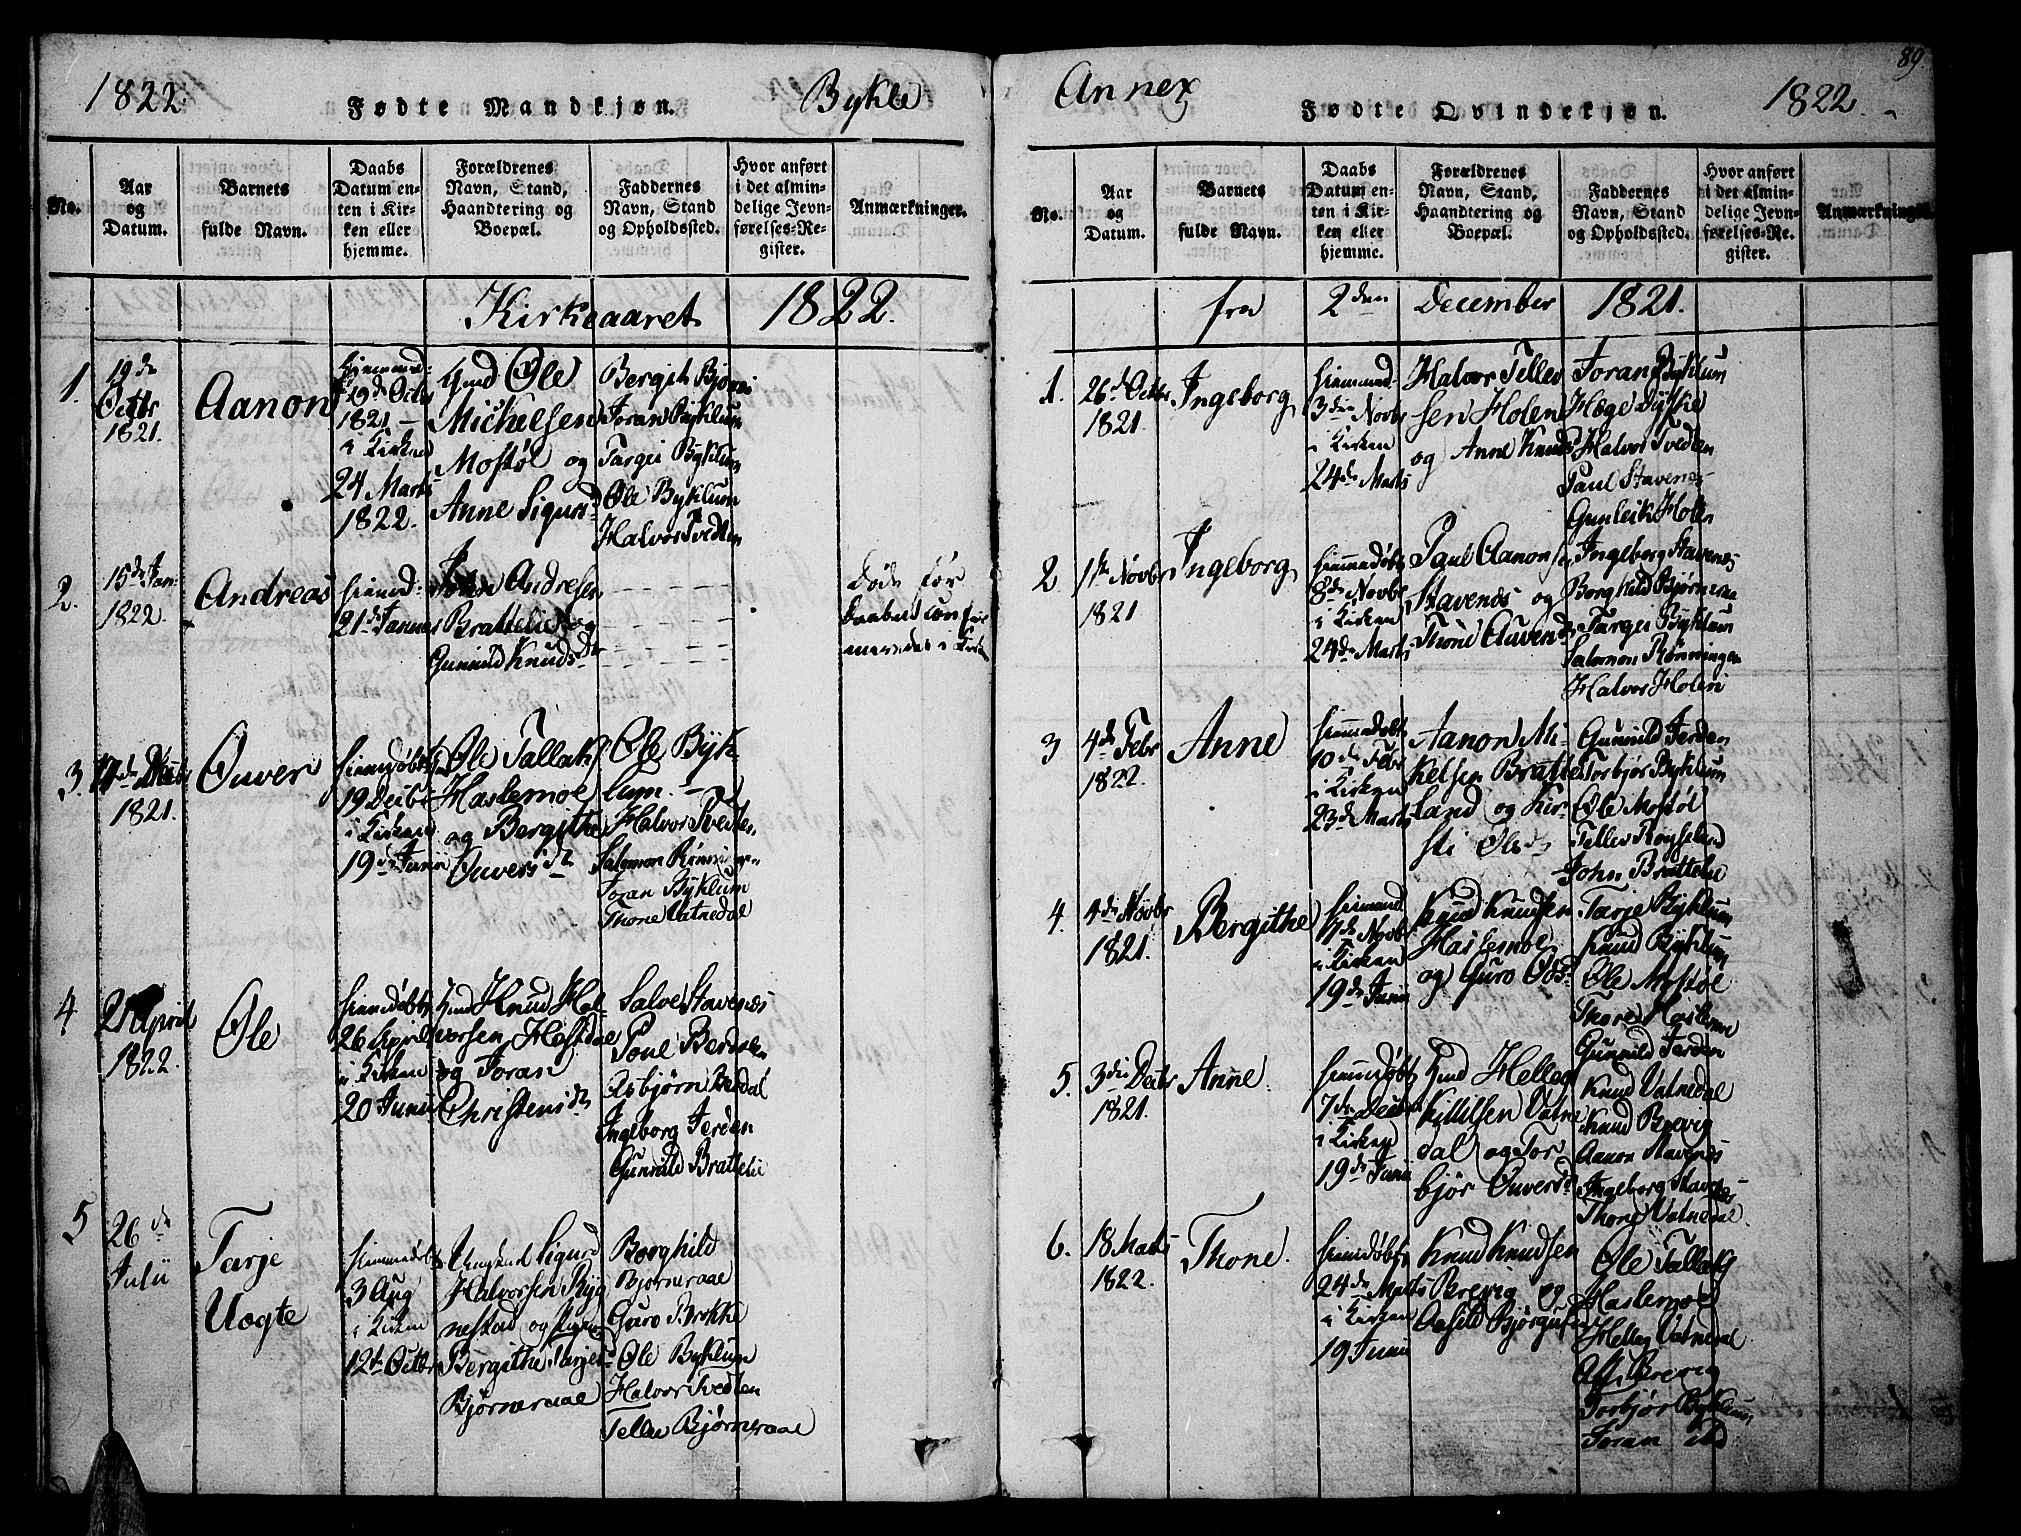 1822
Fødte Mandkjøn.
Bykle
No.
Aar
og
Datum.
Barnets
fulde Navn.
Daabs
Datum en-
ten i Kir-
ken eller
hjemme.
Forældrenes
Navn, Stand,
Haandtering og
Boepæl.
Faddernes
Navn, Stand
og Opholdssted.
Hvor anført
i det almin-
delige Jevn-
førelses-Re-
gister.
Anmærkninger.
Kirkeaaret 1822.
1.
19de
Octbr
1821.
Aanon
19de Octbr
1821
i Kirken
24 Marts
1822.
Gmd Ole
Mickelsen
Mostøl og
Anne Sigurdsd
Bergit
Joran Byklum
Targei Byklum
Ole Byklum
Halvor Tvedten
2.
15de Jan
1822.
Andreas
21de Januar
Andresen
Brattelie og
Gunild Knudsdr
Døde før
3.
1821.
Ouver
hiemedøbt
19 Decbr
i Kirken
19de Junii
Ole Tallaks
Haslemoe
og Bergithe
Ouversdr
Ole Byk-
lum.
Halvor Tvedten
Salomon
Joran Byklum
Thone Vatnedal
4
April
1822.
Ole
hiemedøbt
26 April
i Kirken
20 Junii
Gmd Knud Hal-
vorsen
og Joran
Christensdr
Salve Stavenes
Asbjørn
Ingeborg Jerden
Gunnild Brattelie
5
26de
Julii
Tarje
Uogte
hiemmedøbt
3 Aug
i Kirken
12te Octbr
Ungkarl Sigurd
Halvorsen Ryg
nestad og
Bergithe Tarjesd
Bjørneraae
Borghild
Bjørneraae
Guro Brokke
Ole Byklum
Halvor Tvedten
Tellev Bjørneraae
89
Annex
Fødte Qvindekjøn.
1822.
No.
Aar
og
Datum.
Barnets
fulde Navn.
Daabs
Datum en-
ten i Kir-
ken eller
hjemme.
Forældrenes
Navn, Stand,
Haandtering og
Boepæl.
Faddernes
Navn, Stand
og Opholdssted.
Hvor anført
i det almin-
delige Jevn-
førelses-Re-
gister.
Anmærkninger.
fra 2den December 1821.
1.
26de Octbr
1821
Ingeborg
3die Novbr
i Kirken
24de Marts
Halvor Tellev
sen Holen
og Anne Knudsd
Joran Byklum
Hæge Dyskie
Halvor Tvedten
Paul Stavenes
Gunleik Holen
2
1te Novbr
1821
Ingeborg
hiemmedøbt
8de Novbr
i Kirken
24de Marts
Paul Aanonsen
Stavenes og
Thone Ouvensd
Ingeborg Stavenes
Borghild Bjørneraa
Targei Byklum
Salomon Rønningen
Halvor Holen
3
4de Febr
1822.
Anne
hiemmedøbt
10de Febr
i Kirken
23de Marts
Aanon Mi-
kelsen Bratte
land og Kir-
sti Olesdr
Gunnild Jerden
Torbjør Byklum
Ole Mostøl
Tellev Røyseland
John Brattelie
4.
4de Novbr
1821.
Bergithe
Novbr
i Kirken
19de Junii
Knud Knudsen
Haslemoe
og Guro
Tarje Byklum
Knud Byklum
Ole Mostøl
Thore Haslemoe
Gunnild Jerden
5.
3die Decbr
1821.
Anne.
hiemmedøbt
7de Decbr
i Kirken
19de Junii
Gmd Helleg
Kyttilsen Vatne
dal og Tor
bjør Ouversd
Knud Vatnedal
Knud Brevig
Aanon Stavenes
Ingeborg Stavenes
Thone Vatnedal.
6.
18 Marts
1822.
Thone.
hiemdøbt
24de Marts
i Kirken
19 Junii
Knud Knudsen
Brevig og
Aasild Bjørgufsd
Ole Tallaks
Haslemoe
Helleg Vatnedal
Brevig
Torbjør Byklum
Joran ibd